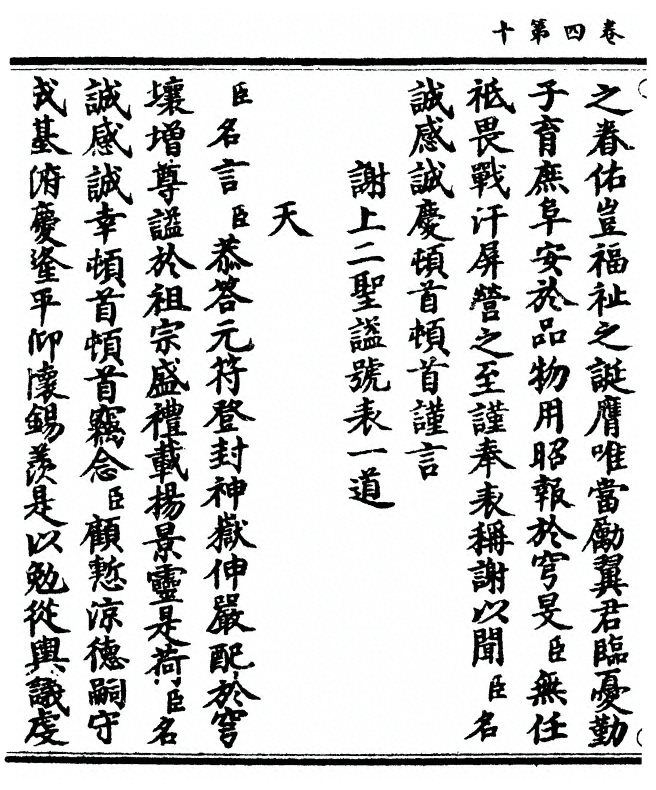 卷四第十
之眷佑豈福祉之誕膺唯當勵翼君臨憂勤
子育庶阜安於品物用昭報於穹旻臣無任
祇畏戰汗屏營之至謹奉表稱謝以聞臣名
誠感誠慶頓首頓首謹言
謝上二聖謚號表一道
天
臣名言臣恭荅元符登封神嶽伸嚴配於穹
壤增尊謚於祖宗盛禮載揚景靈是荷臣名
誠感誠幸頓首頓首竊念臣顧慙涼德嗣守
丕基俯慶逢平仰懷錫羨是以勉從輿議虔